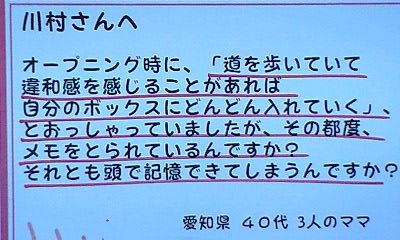 川村さんへ
オープニング時に、「道を歩いていて
違和感を感じることがあれば
自分のボックスにどんどん入れていく」、
とおっしゃっていましたが、その都度、
メモをとられているんですか？
それとも頭で記憶できてしまうんですか？
愛知県 40代 3人のママ